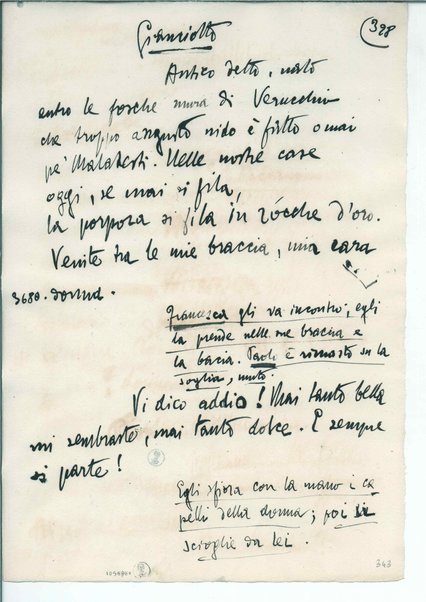 398
Gianciotto
Antico detto, nato
entro le fosche mura di Verucchio
che troppo angusto nido è fatto omai
pe' Malatesti. Nelle nostre case
oggi, se mai si fila,
la porpora si fila in ròcche d'oro.
Venite tra le mie braccia, mia cara
3680. donna.
Francesca gli va incontro, egli
la prende nelle sue braccia e
la bacia. Paolo è rimasto su la
soglia, muto.
Vi dico addio! Mai tanto bella
mi sembraste, mai tanto dolce. E sempre
si parte!
Egli sfiora con la mano i ca-
pelli della donna; poi si
scioglie da lei.
343